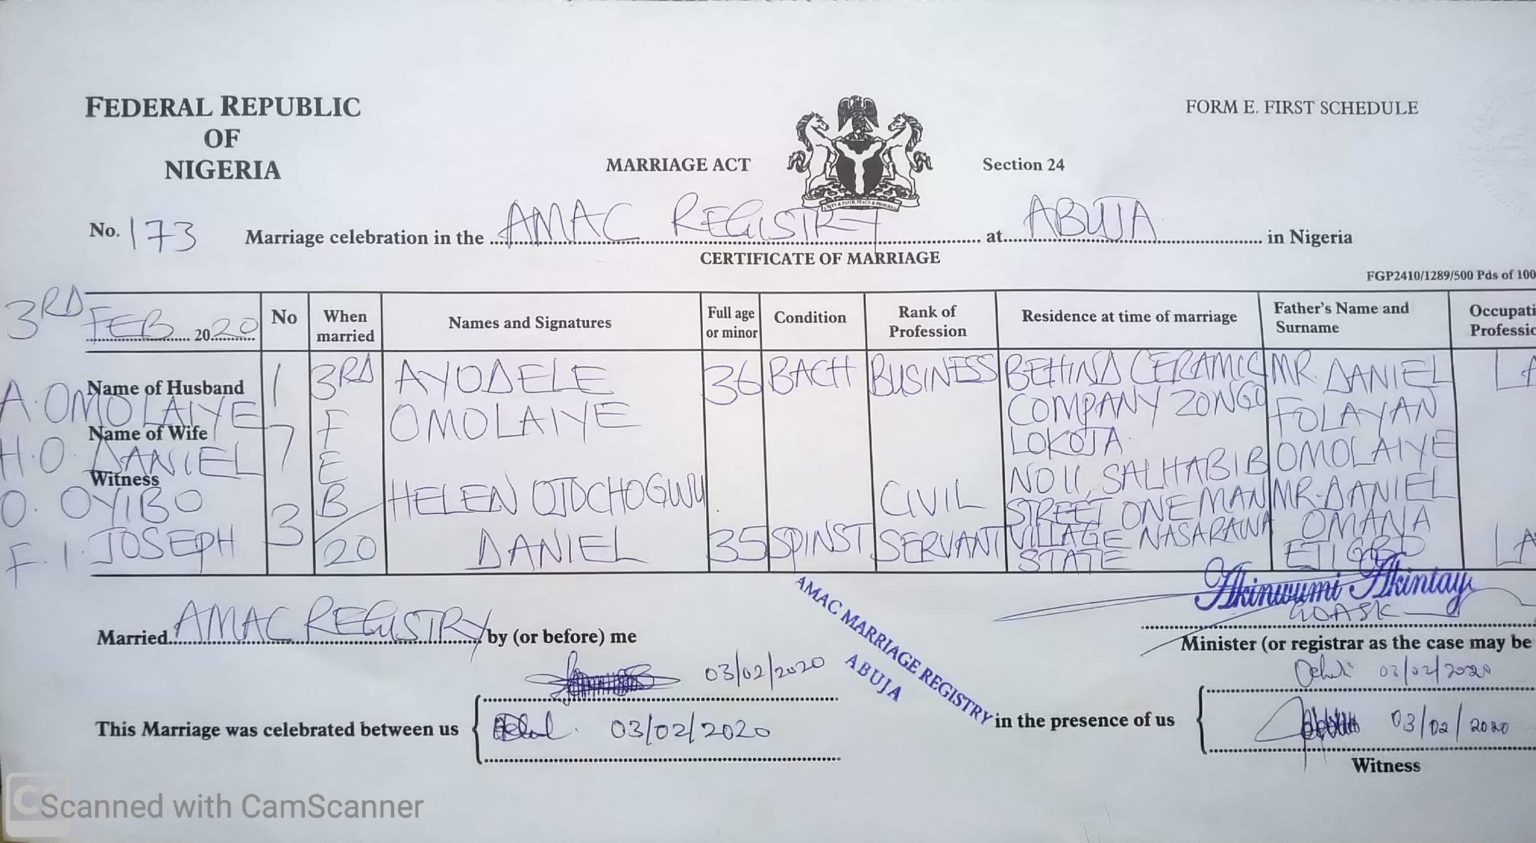 FEDERAL REPUBLIC
OF
NIGERIA
FORM E. FIRST SCHEDULE
MARRIAGE ACT
Section 24
No. 173 Marriage celebration in the AMAC REGISTRY at ABUJA in Nigeria
CERTIFICATE OF MARRIAGE
FGP2410/1289/500 Pds of 100
3RD FEB 2020
No
When married
Names and Signatures
Full age or minor
Condition
Rank of Profession
Residence at time of marriage
Father's Name and Surname
Occupati
Professio
Name of Husband
A. OMOLAIYE
Name of Wife
H.O. DANIEL
Witness
O. OYIBO
F. I. JOSEPH
173
3RD FEB/20
AYODELE
OMOLAIYE
36
BACH
BUSINESS
BEHIND CERAMIC
COMPANY ZONGO
LOKOJA
MR. DANIEL
FOLAYAN
OMOLAIYE
LA
HELEN OJOCHOGWU
DANIEL
35
SPINST
CIVIL
SERVANT
NO 11, SALHABIB
STREET ONE MAN
VILLAGE NASARAWA
STATE
MR. DANIEL
OMANA
EJIGBO
LA
Akinwumi Akintay
Married AMAC REGISTRY by (or before) me
Minister (or registrar as the case may be
AMAC MARRIAGE REGISTRY
ABUJA
03/02/2020
03/02/2020
This Marriage was celebrated between us
03/02/2020
in the presence of us
03/02/2020
Witness
Scanned with CamScanner